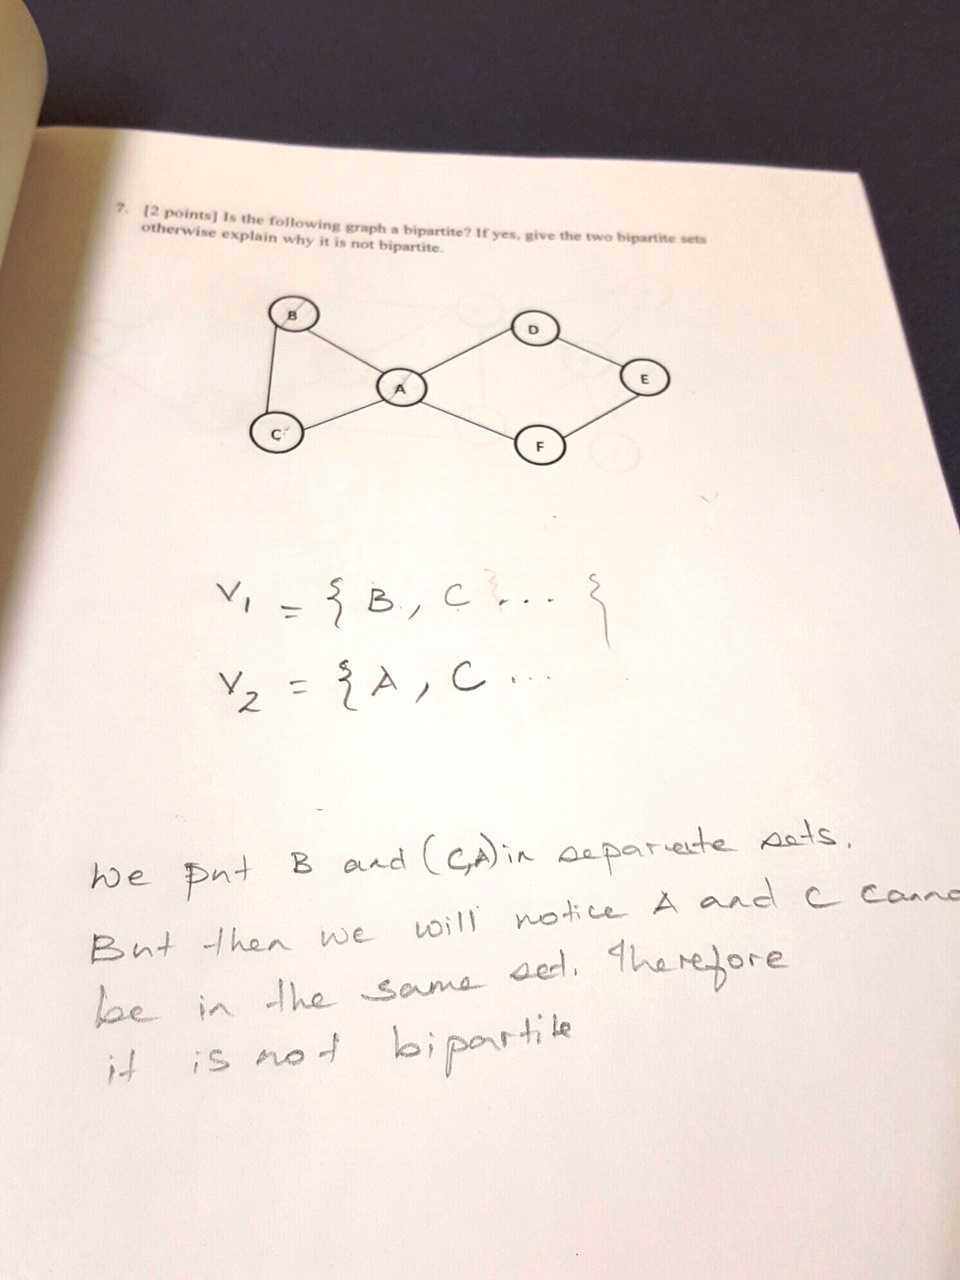 7. [2 points] Is the following graph a bipartite? If yes, give the two bipartite sets
otherwise explain why it is not bipartite.
B
D
A
E
C
F
V1 = { B, C ... {
V2 = { A, C ...
We put B and (C,A) in separate sets.
But then we will notice A and C canno
be in the same set. Therefore
it is not bipartite